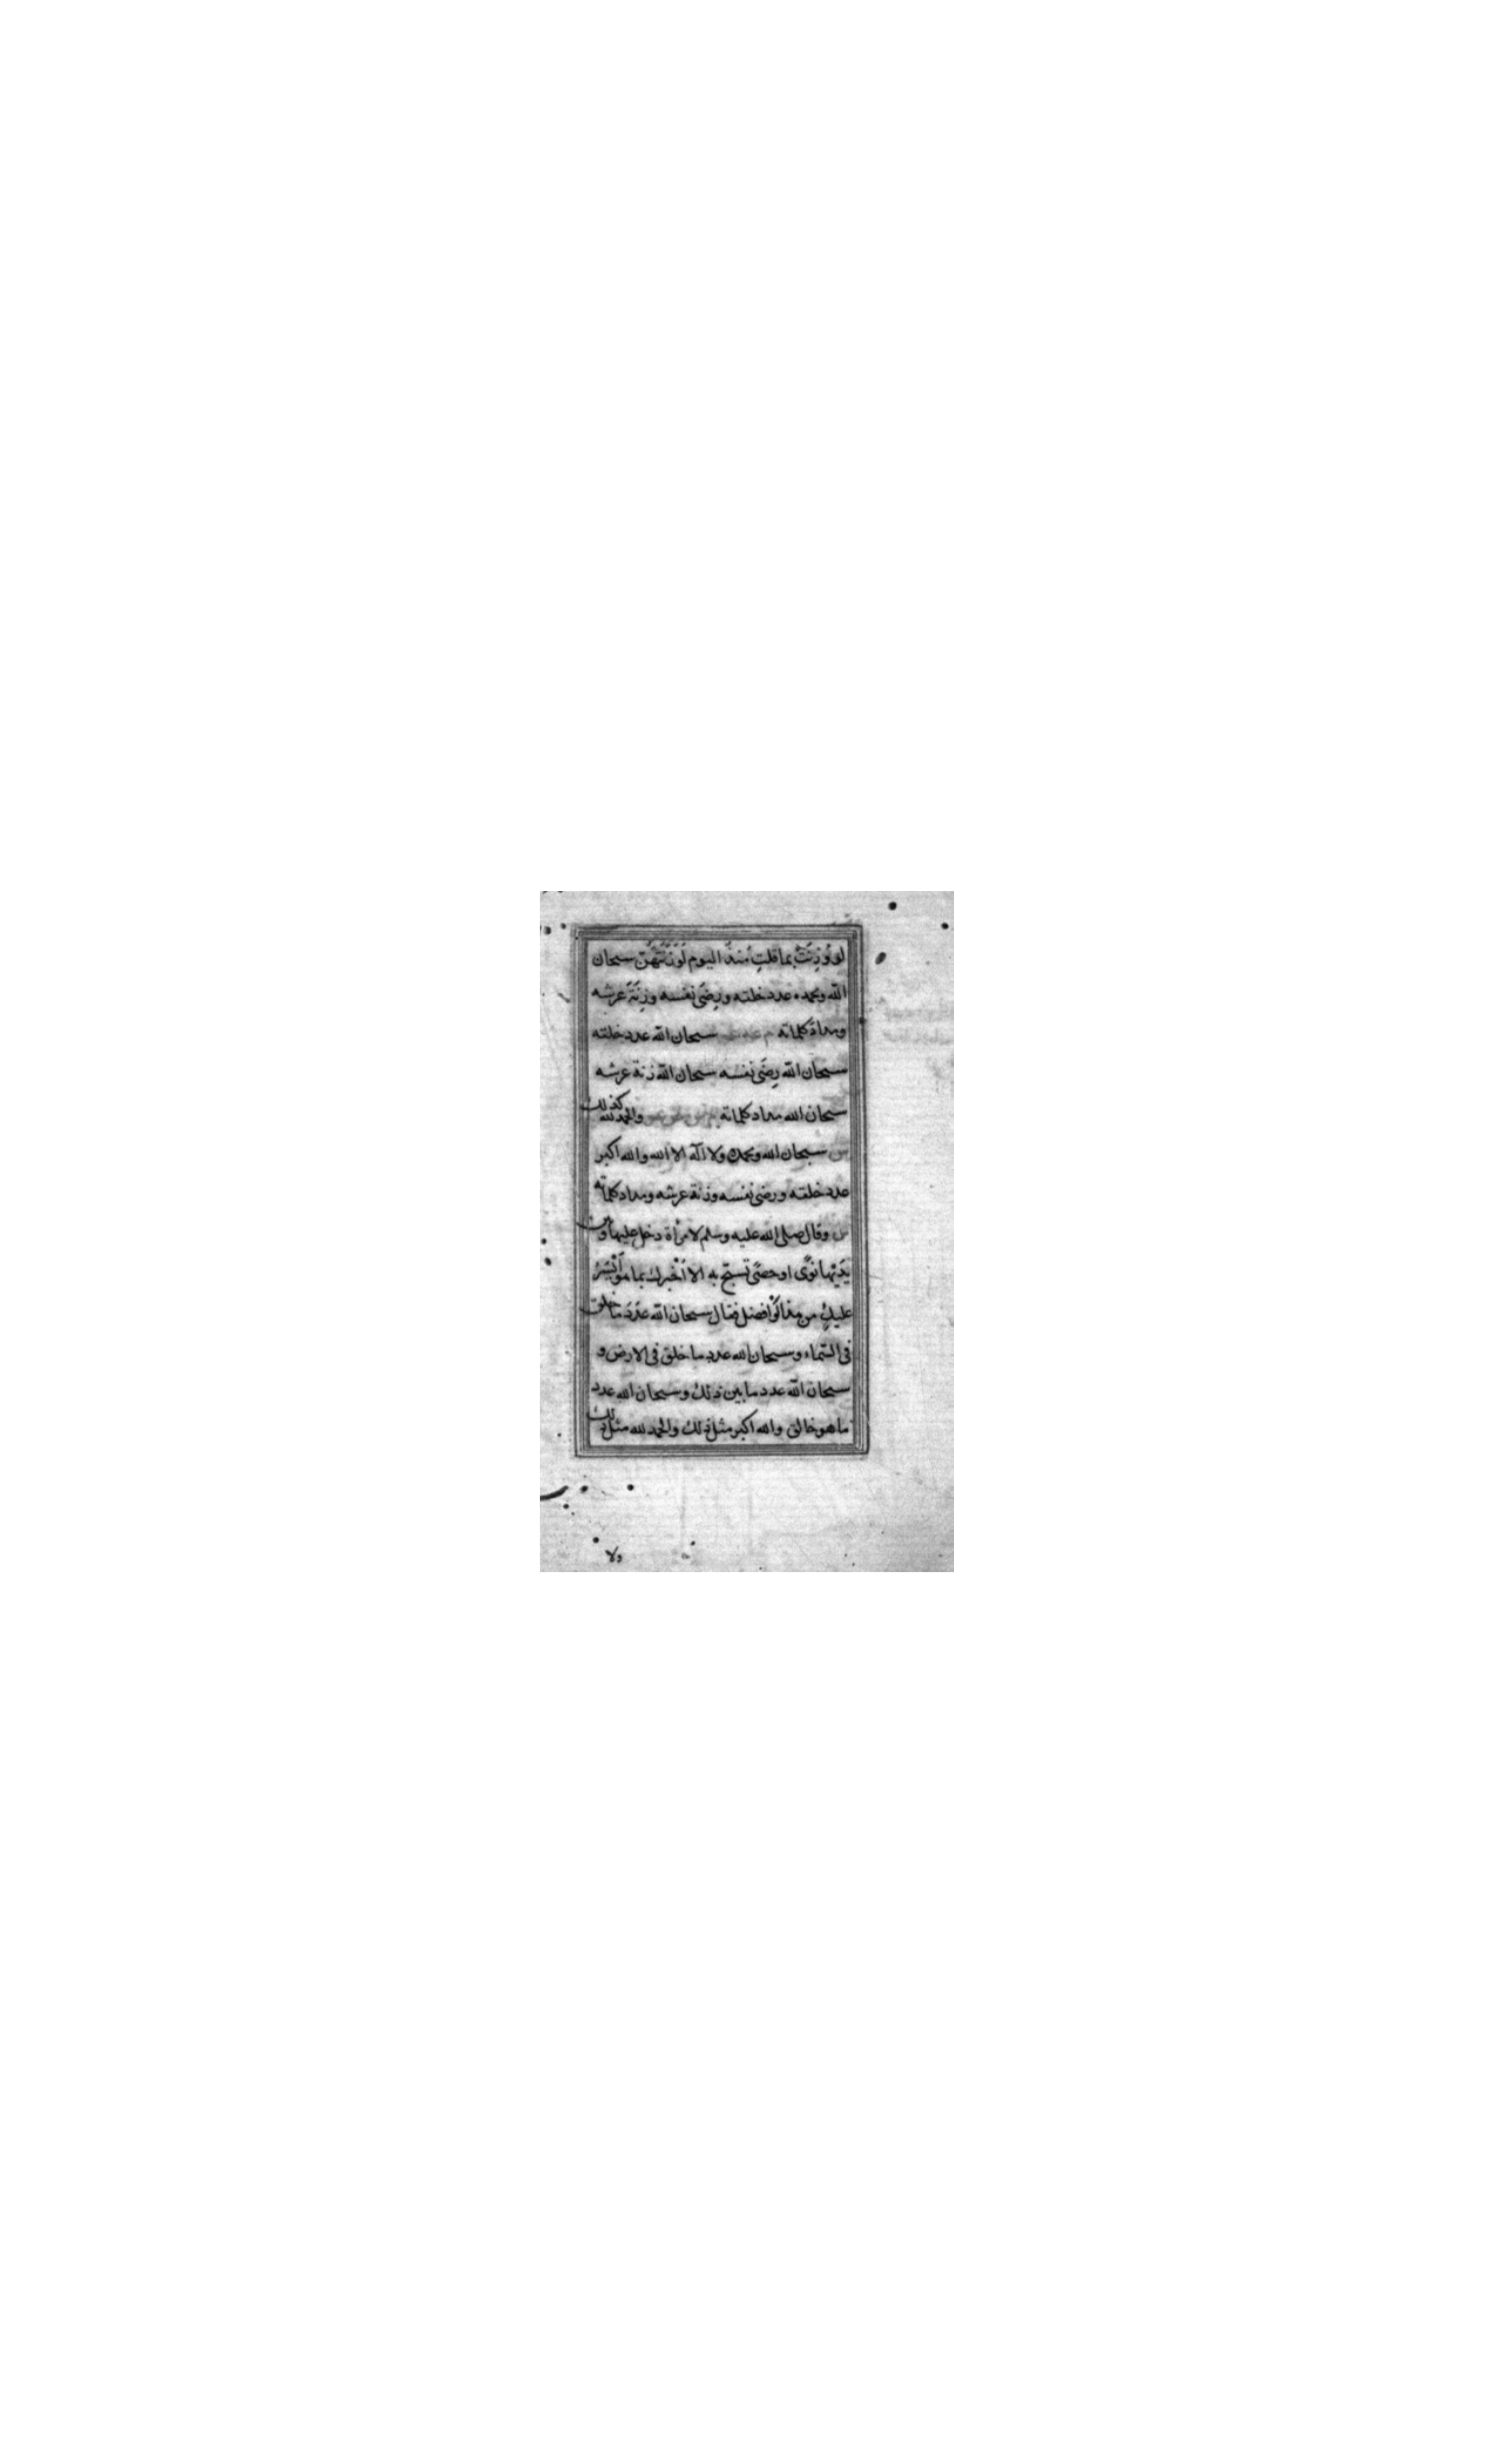 لو وُزِنَتْ بما قلتِ مُنذُ اليوم لَوَزَنَتْهُنّ سبحان
الله وبحمده عدد خلقه ورِضَى نفسه وزِنَةَ عرشه
ومدادَ كلماته م عه سبحان الله عدد خلقه
سبحان الله رِضَى نفسه سبحان الله زنة عرشه
سبحان الله مداد كلماته والحمد لله كذلك
س سبحان الله وبحمده ولا اله الا الله والله اكبر
عدد خلقه ورضى نفسه وزنة عرشه ومداد كلماته
س وقال صلى الله عليه وسلم لامرْأة دخل عليها وبين
يدَيْها نوًى او حصًى تسبّح به الا اُخْبرك بما هو اَيْسَرُ
عليكِ من هذا اَوْ افضل فقال سبحان الله عدَدَ ما خلق
فى السّماء وسبحان الله عدد ما خلق فى الارض و
سبحان الله عدد ما بين ذلك وسبحان الله عدد
ما هو خالق والله اكبر مثل ذلك والحمد لله مثل ذلك
ولا